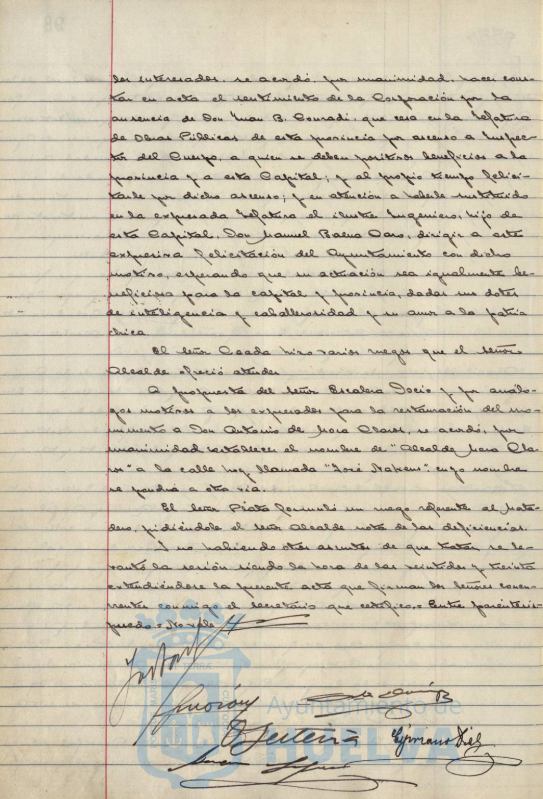 los interesados, se acordó, por unanimidad, hacer cons-
tar en acta el sentimiento de la Corporación por la
ausencia de Don Juan B. Conradi, que cesa en la Jefatura
de Obras Públicas de esta provincia por ascenso a Inspec-
tor del Cuerpo, a quien se deben positivos beneficios a la
provincia y a esta Capital; y al propio tiempo felici-
tarle por dicho ascenso; y en atención a haberle sustituido
en la expresada Jefatura el ilustre Ingeniero, hijo de
esta Capital, Don Manuel Baena, dirigir a este
expresiva felicitación del Ayuntamiento con dicho
motivo, esperando que su actuación sea igualmente be-
neficiosa para la capital y provincia, dadas sus dotes
de inteligencia y caballerosidad y su amor a la patria
chica
El señor hizo varios ruegos que el señor
Alcalde ofreció atender
A propuesta del señor Escalera Docio y por análo-
gos motivos a los expresados para la restauración del mo-
numento a Don Antonio de Mora Claros, se acordó, por
unanimidad restablecer el nombre de "Alcalde Mora Cla-
ros" a la calle hoy llamada "José Nakens" cuyo nombre
se pondrá a otra vía.
El señor formuló un ruego referente al Mata-
dero, pidiéndole el señor Alcalde nota de las deficiencias.
Y no habiendo otros asuntos de que tratar se le-
vantó la sesión siendo la hora de las veintidós y treinta
extendiéndose la presente acta que firman los señores concu-
rrentes conmigo el secretario que certifico. = Entre paréntesis-
= No vale
Cipriano Díez
Ayuntamiento de
HUELVA